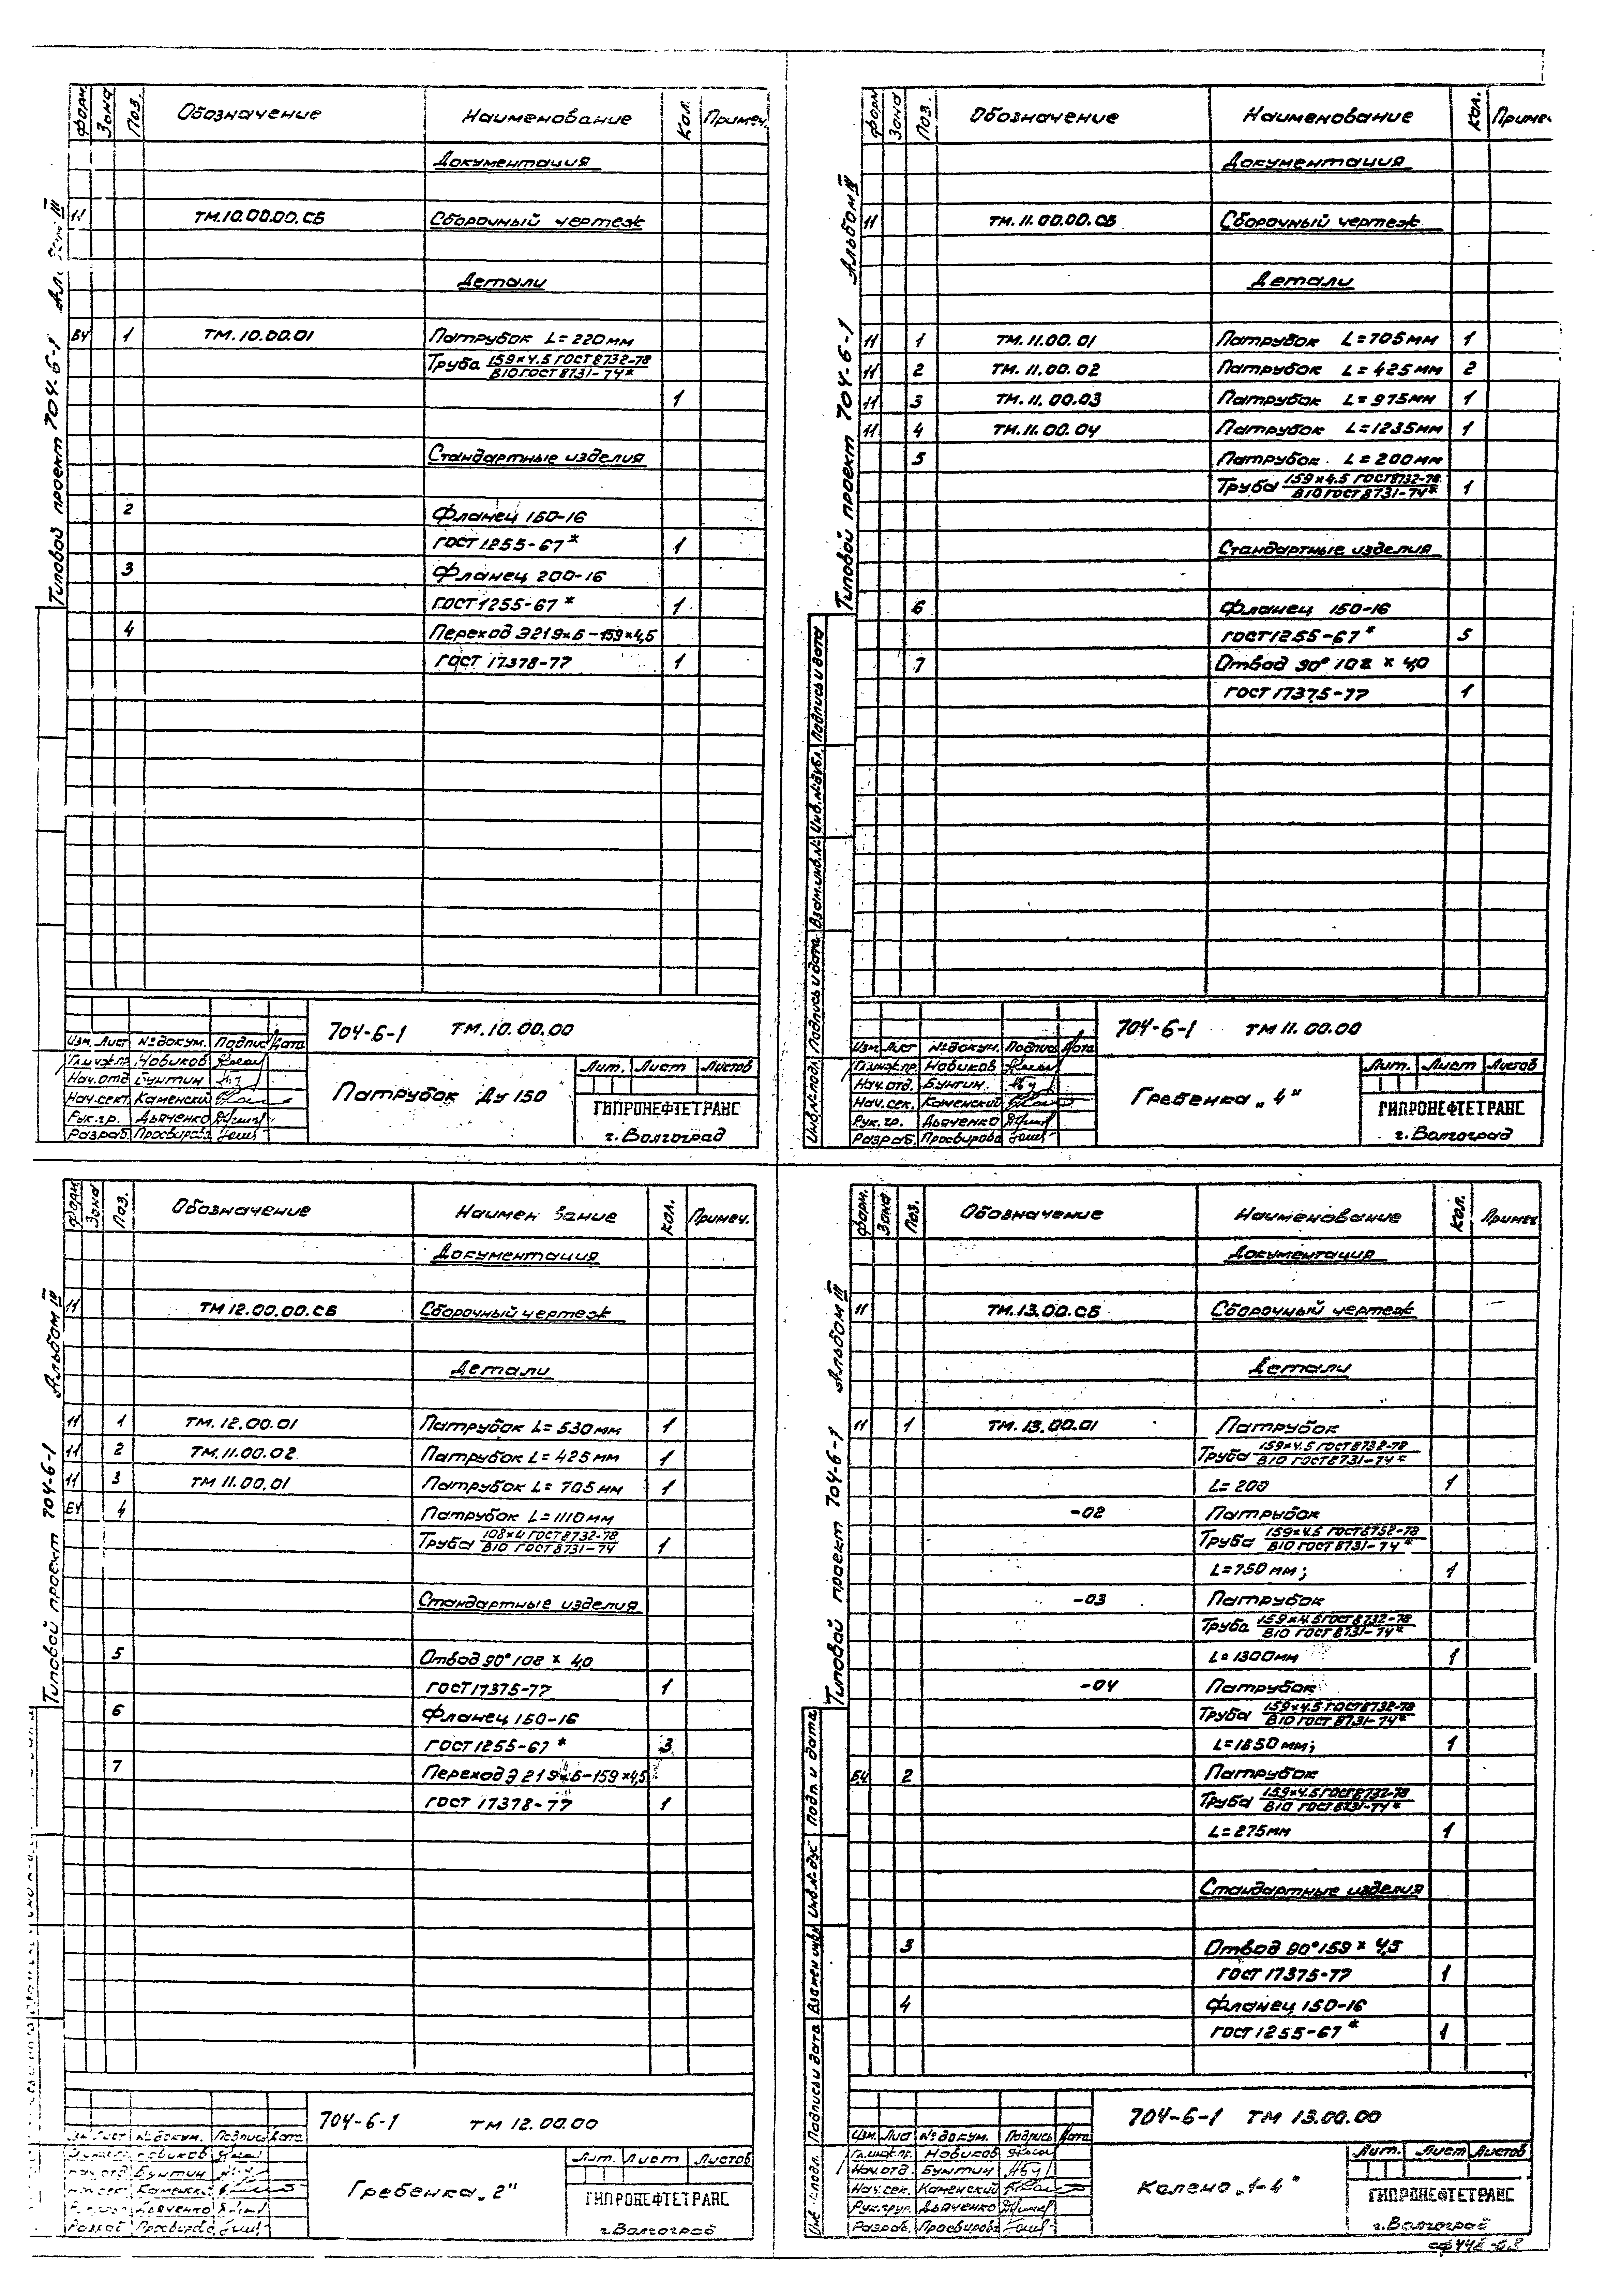 Типовой проект 704-6-1
Форм. Зона Поз. Обозначение Наименование Кол. Примеч.
Документация
11 ТМ.10.00.00.СБ Сборочный чертеж
Детали
БЧ 1 ТМ.10.00.01 Патрубок L=220мм
Труба 159×4.5 ГОСТ 8732-78
В10 ГОСТ 8731-74*
1
Стандартные изделия
2 Фланец 150-16
ГОСТ 1255-67* 1
3 Фланец 200-16
ГОСТ 1255-67* 1
4 Переход Э219×6-159×4,5
ГОСТ 17378-77 1
704-6-1 ТМ.10.00.00
Изм. Лист №докум. Подпись Дата
Гл.инж.пр. Новиков
Нач.отд Бунтин
Нач.сект. Каменский
Рук.гр. Дьяченко
Разраб. Просвирова
Патрубок Ду 150
Лит. Лист Листов
ГИПРОНЕФТЕТРАНС
г. Волгоград
Типовой проект 704-6-1 Альбом III
Форм Зона Поз. Обозначение Наименование Кол. Примеч
Документация
11 ТМ.11.00.00.СБ Сборочный чертеж
Детали
11 1 ТМ.11.00.01 Патрубок L=705мм 1
11 2 ТМ.11.00.02 Патрубок L=425мм 2
11 3 ТМ.11.00.03 Патрубок L=975мм 1
11 4 ТМ.11.00.04 Патрубок L=1235мм 1
5 Патрубок L=200мм
Труба 159×4.5 ГОСТ 8732-78
В10 ГОСТ 8731-74* 1
Стандартные изделия
6 Фланец 150-16
ГОСТ 1255-67* 5
7 Отвод 90° 108 × 4,0
ГОСТ 17375-77 1
Инв.№подл Подпись и дата Взам.инв.№ Инв.№дубл. Подпись и дата
704-6-1 ТМ 11.00.00
Изм Лист №докум. Подпись Дата
Гл.инж.пр. Новиков
Нач.отд. Бунтин.
Нач.сек. Каменский
Рук.гр. Дьяченко
Разраб. Просвирова
Гребенка „4"
Лит. Лист Листов
ГИПРОНЕФТЕТРАНС
г. Волгоград
Типовой проект 704-6-1 Альбом III
Форм Зона Поз. Обозначение Наимен вание Кол. Примеч.
Документация
11 ТМ 12.00.00.СБ Сборочный чертеж
Детали
11 1 ТМ.12.00.01 Патрубок L=530мм 1
11 2 ТМ.11.00.02 Патрубок L=425мм 1
11 3 ТМ 11.00.01 Патрубок L=705мм 1
БЧ 4 Патрубок L=1110мм
Труба 108×4 ГОСТ 8732-78
В10 ГОСТ 8731-74 1
Стандартные изделия
5 Отвод 90° 108 × 4,0
ГОСТ 17375-77 1
6 Фланец 150-16
ГОСТ 1255-67* 3
7 Переход Э 219×6-159×4,5
ГОСТ 17378-77 1
704-6-1 ТМ 12.00.00
Лист №докум. Подпись Дата
Бунтин
Каменский
Дьяченко
Разраб Просвирова
Гребенка „2"
Лит. Лист Листов
ГИПРОНЕФТЕТРАНС
г. Волгоград
Типовой проект 704-6-1 Альбом III
Форм. Зона Поз. Обозначение Наименование Кол. Примеч
Документация
11 ТМ.13.00.СБ Сборочный чертеж
Детали
11 1 ТМ.13.00.01 Патрубок
Труба 159×4.5 ГОСТ 8732-78
В10 ГОСТ 8731-74*
L=200 1
-02 Патрубок
Труба 159×4.5 ГОСТ 8732-78
В10 ГОСТ 8731-74*
L=750мм; 1
-03 Патрубок
Труба 159×4.5 ГОСТ 8732-78
В10 ГОСТ 8731-74*
L=1300мм 1
-04 Патрубок
Труба 159×4.5 ГОСТ 8732-78
В10 ГОСТ 8731-74*
L=1850мм; 1
БЧ 2 Патрубок
Труба 159×4.5 ГОСТ 8732-78
В10 ГОСТ 8731-74*
L=275мм 1
Стандартные изделия
3 Отвод 90° 159 × 4,5
ГОСТ 17375-77 1
4 Фланец 150-16
ГОСТ 1255-67* 1
Подпись и дата Взамен инв№ Инв.№ Подп. и дата
704-6-1 ТМ 13.00.00
Изм. Лист №докум. Подпись Дата
Гл.инж.пр. Новиков
Нач.отд. Бунтин
Нач.сек. Каменский
Рук.груп. Дьяченко
Разраб. Просвирова
Колено „1-4"
Лит. Лист Листов
ГИПРОНЕФТЕТРАНС
г. Волгоград